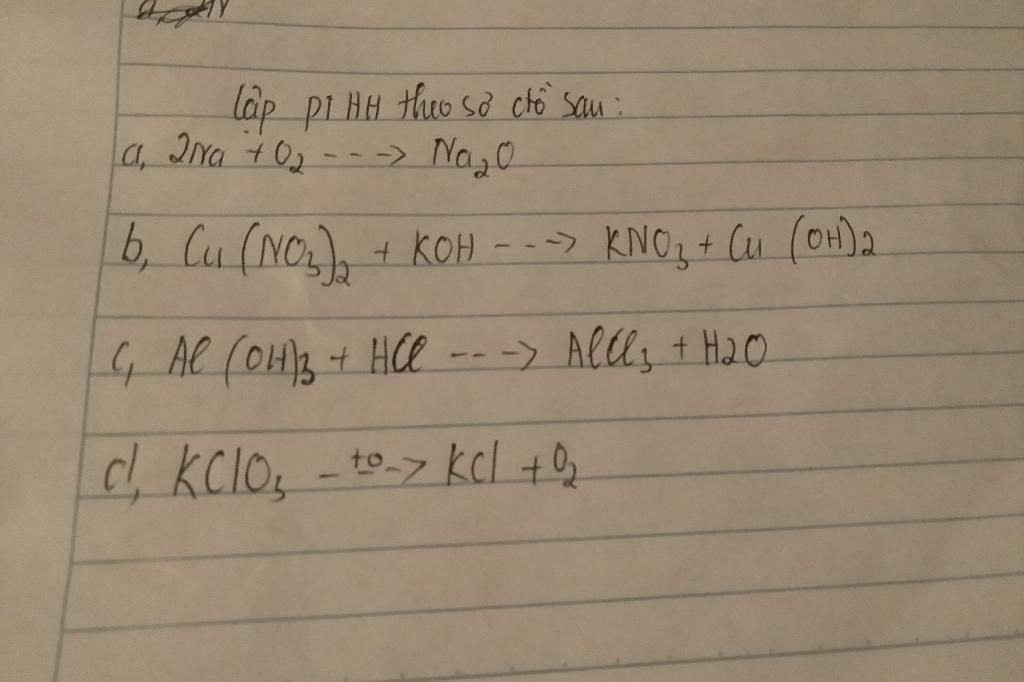 lập PTHH theo sơ đồ sau:
a, 2Na + O₂ ---> Na₂O
b, Cu (NO₃)₂ + KOH ---> KNO₃ + Cu (OH)2
c, Al (OH)3 + HCl ---> AlCl₃ + H2O
d, KClO₃ -to-> KCl + O₂